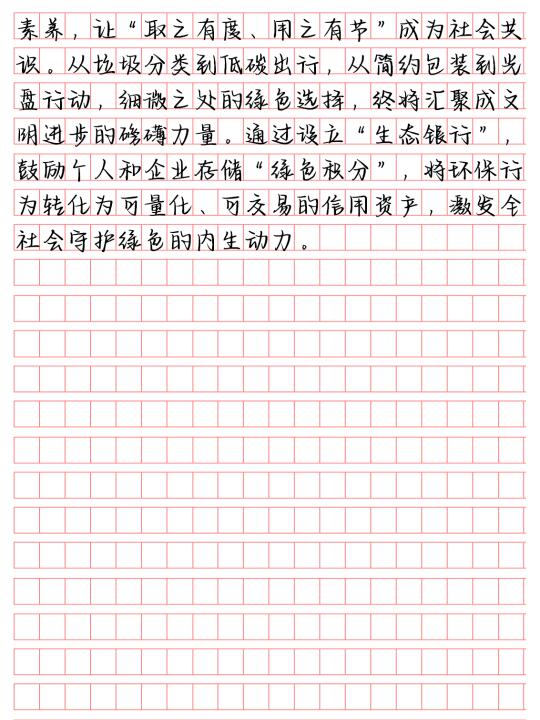 素养，让“取之有度、用之有节”成为社会共
识。从垃圾分类到低碳出行，从简约包装到光
盘行动，细微之处的绿色选择，终将汇聚成文
明进步的磅礴力量。通过设立“生态银行”，
鼓励个人和企业存储“绿色积分”，将环保行
为转化为可量化、可交易的信用资产，激发全
社会守护绿色的内生动力。